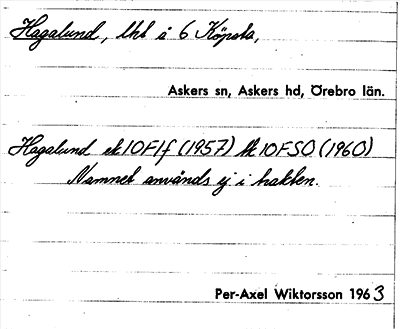 Hagalund, lht å 6 Köpsta,
Askers sn, Askers hd, Örebro län.
Hagalund ek 10F1f (1957) tk 10FSO (1960)
Namnet används ej i trakten.
Per-Axel Wiktorsson 1963